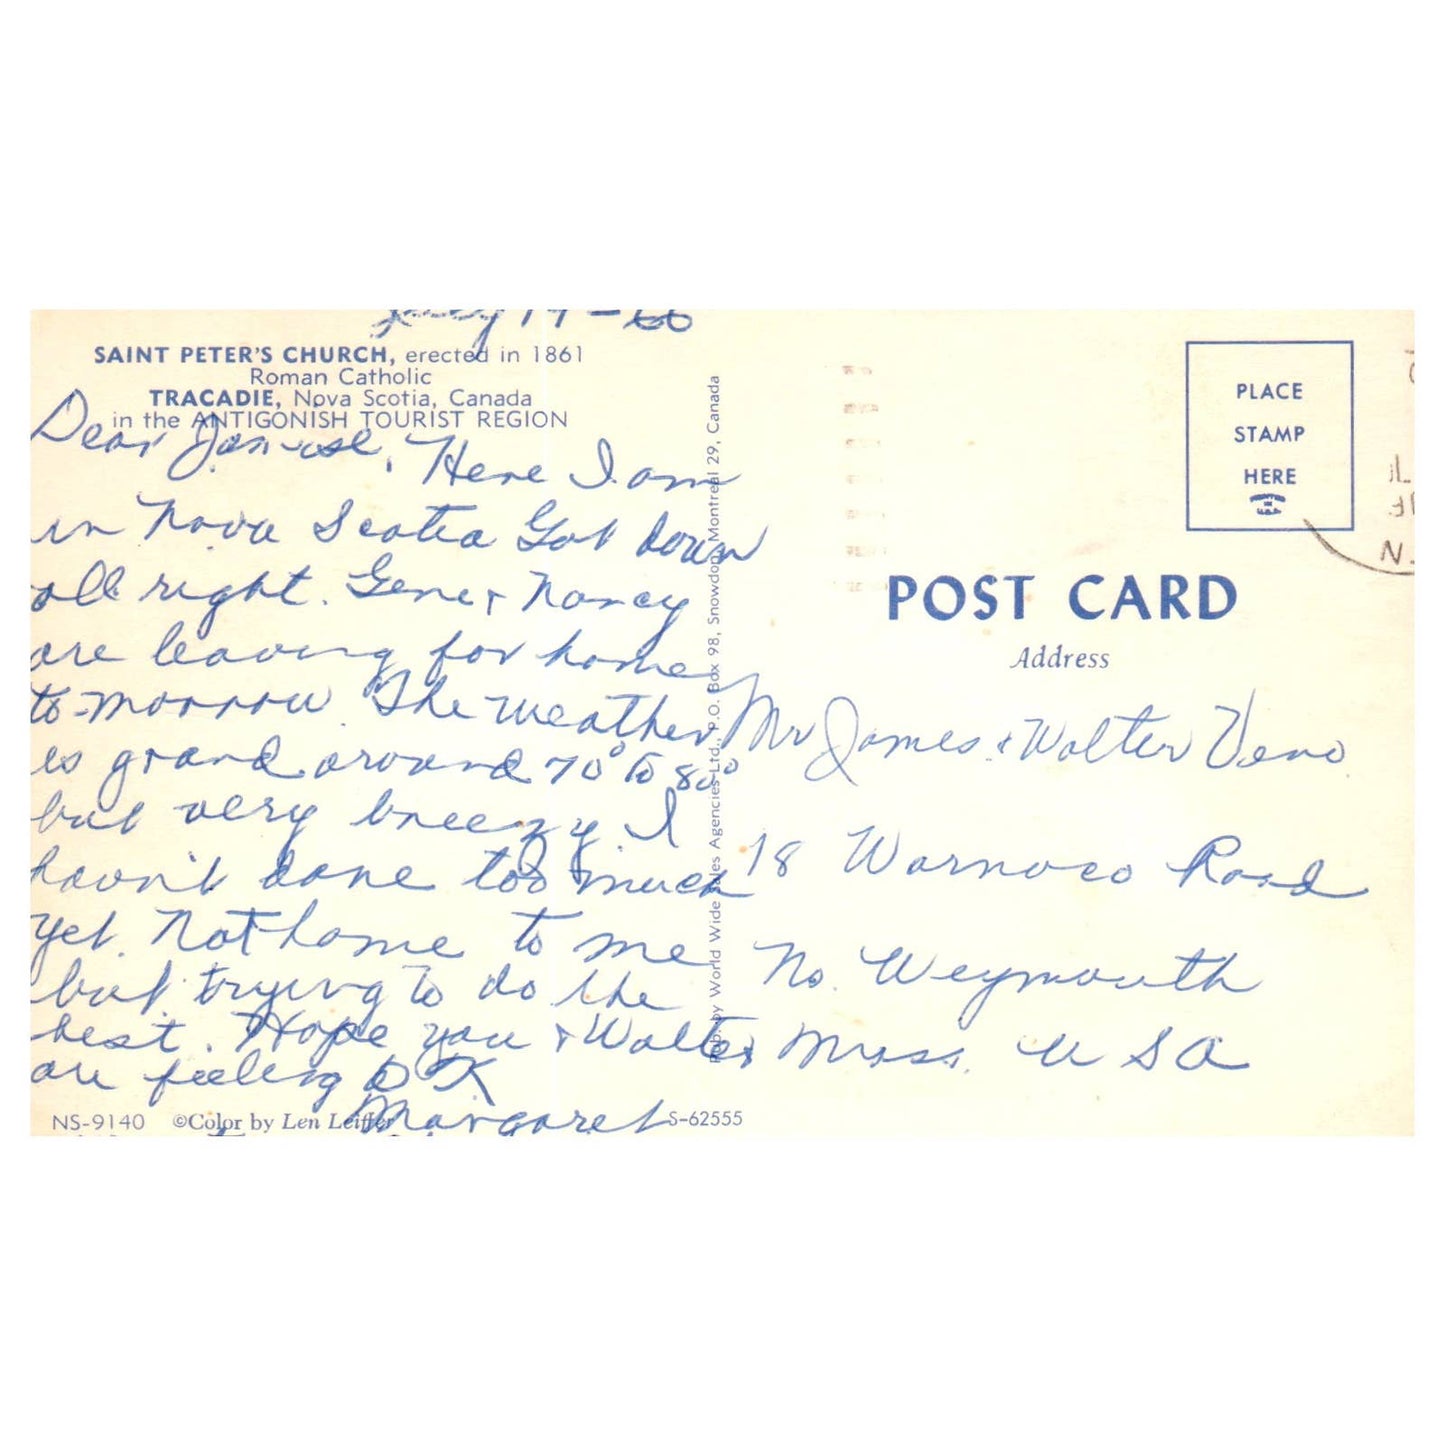 July 19-66
SAINT PETER'S CHURCH, erected in 1861
Roman Catholic
TRACADIE, Nova Scotia, Canada
in the ANTIGONISH TOURIST REGION
Dear Here I am
in Nova Scotia Got down
all right. Gene + Nancy
are leaving for home
to-morrow. The weather
is grand around 70° to 80°
but very breezy. I
havn't done too much
yet. Not home to me
but trying to do the
best. Hope you + Walter
are feeling O K
Margaret
NS-9140 ©Color by Len Leiffer S-62555
Pub. by World Wide Sales Agencies Ltd., P.O. Box 98, Snowdon, Montreal 29, Canada
PLACE
STAMP
HERE
POST CARD
Address
Mr James & Walter Veno
18 Warnoco Road
No. Weymouth
Mass. U S A